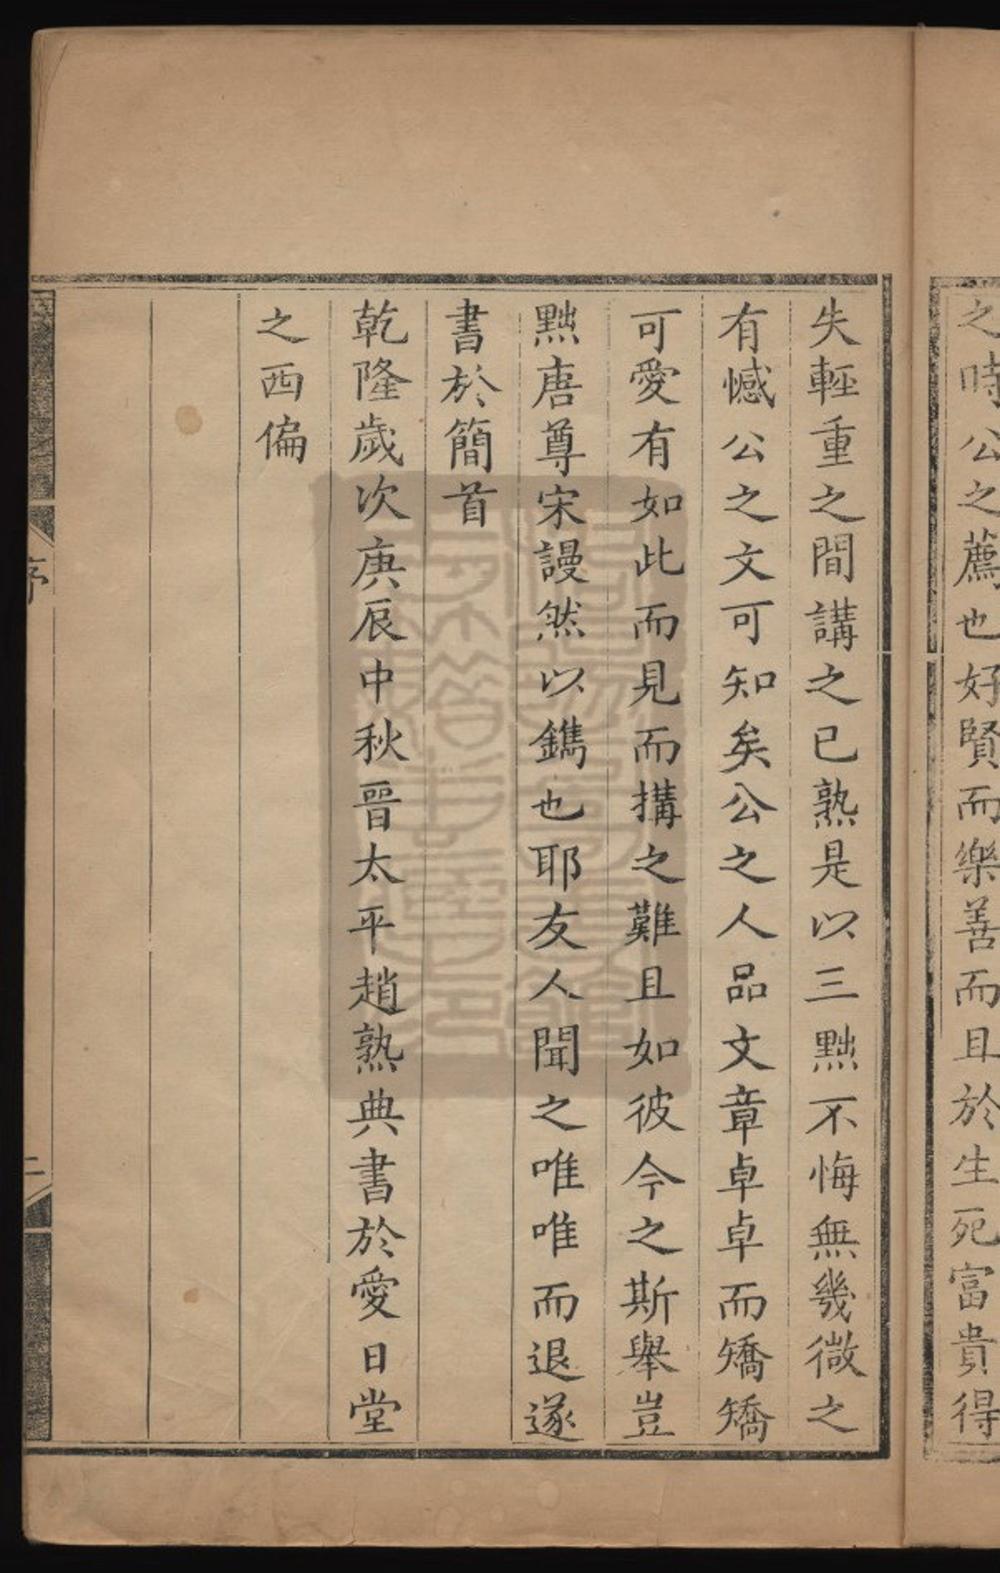 之時公之薦也好賢而樂善而且於生死富貴得
失輕重之間講之已熟是以三黜不悔無幾微之
有憾公之文可知矣公之人品文章卓卓而矯矯
可愛有如此而見而搆之難且如彼今之斯舉豈
黜唐尊宋謾然以鐫也耶友人聞之唯唯而退遂
書於簡首
乾隆歲次庚辰中秋晉太平趙熟典書於愛日堂
之西偏
序
二